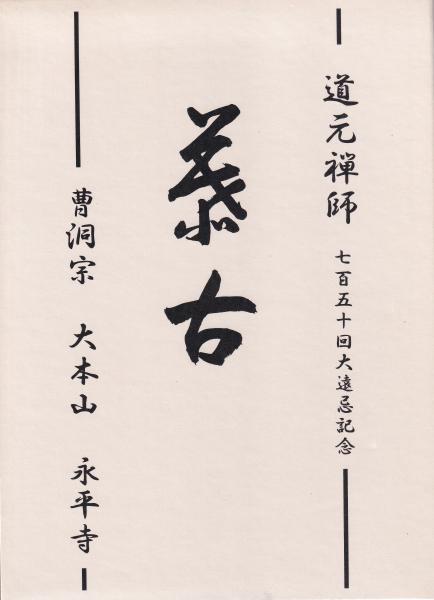 道元禅師 七百五十回大遠忌記念
慕古
曹洞宗 大本山 永平寺